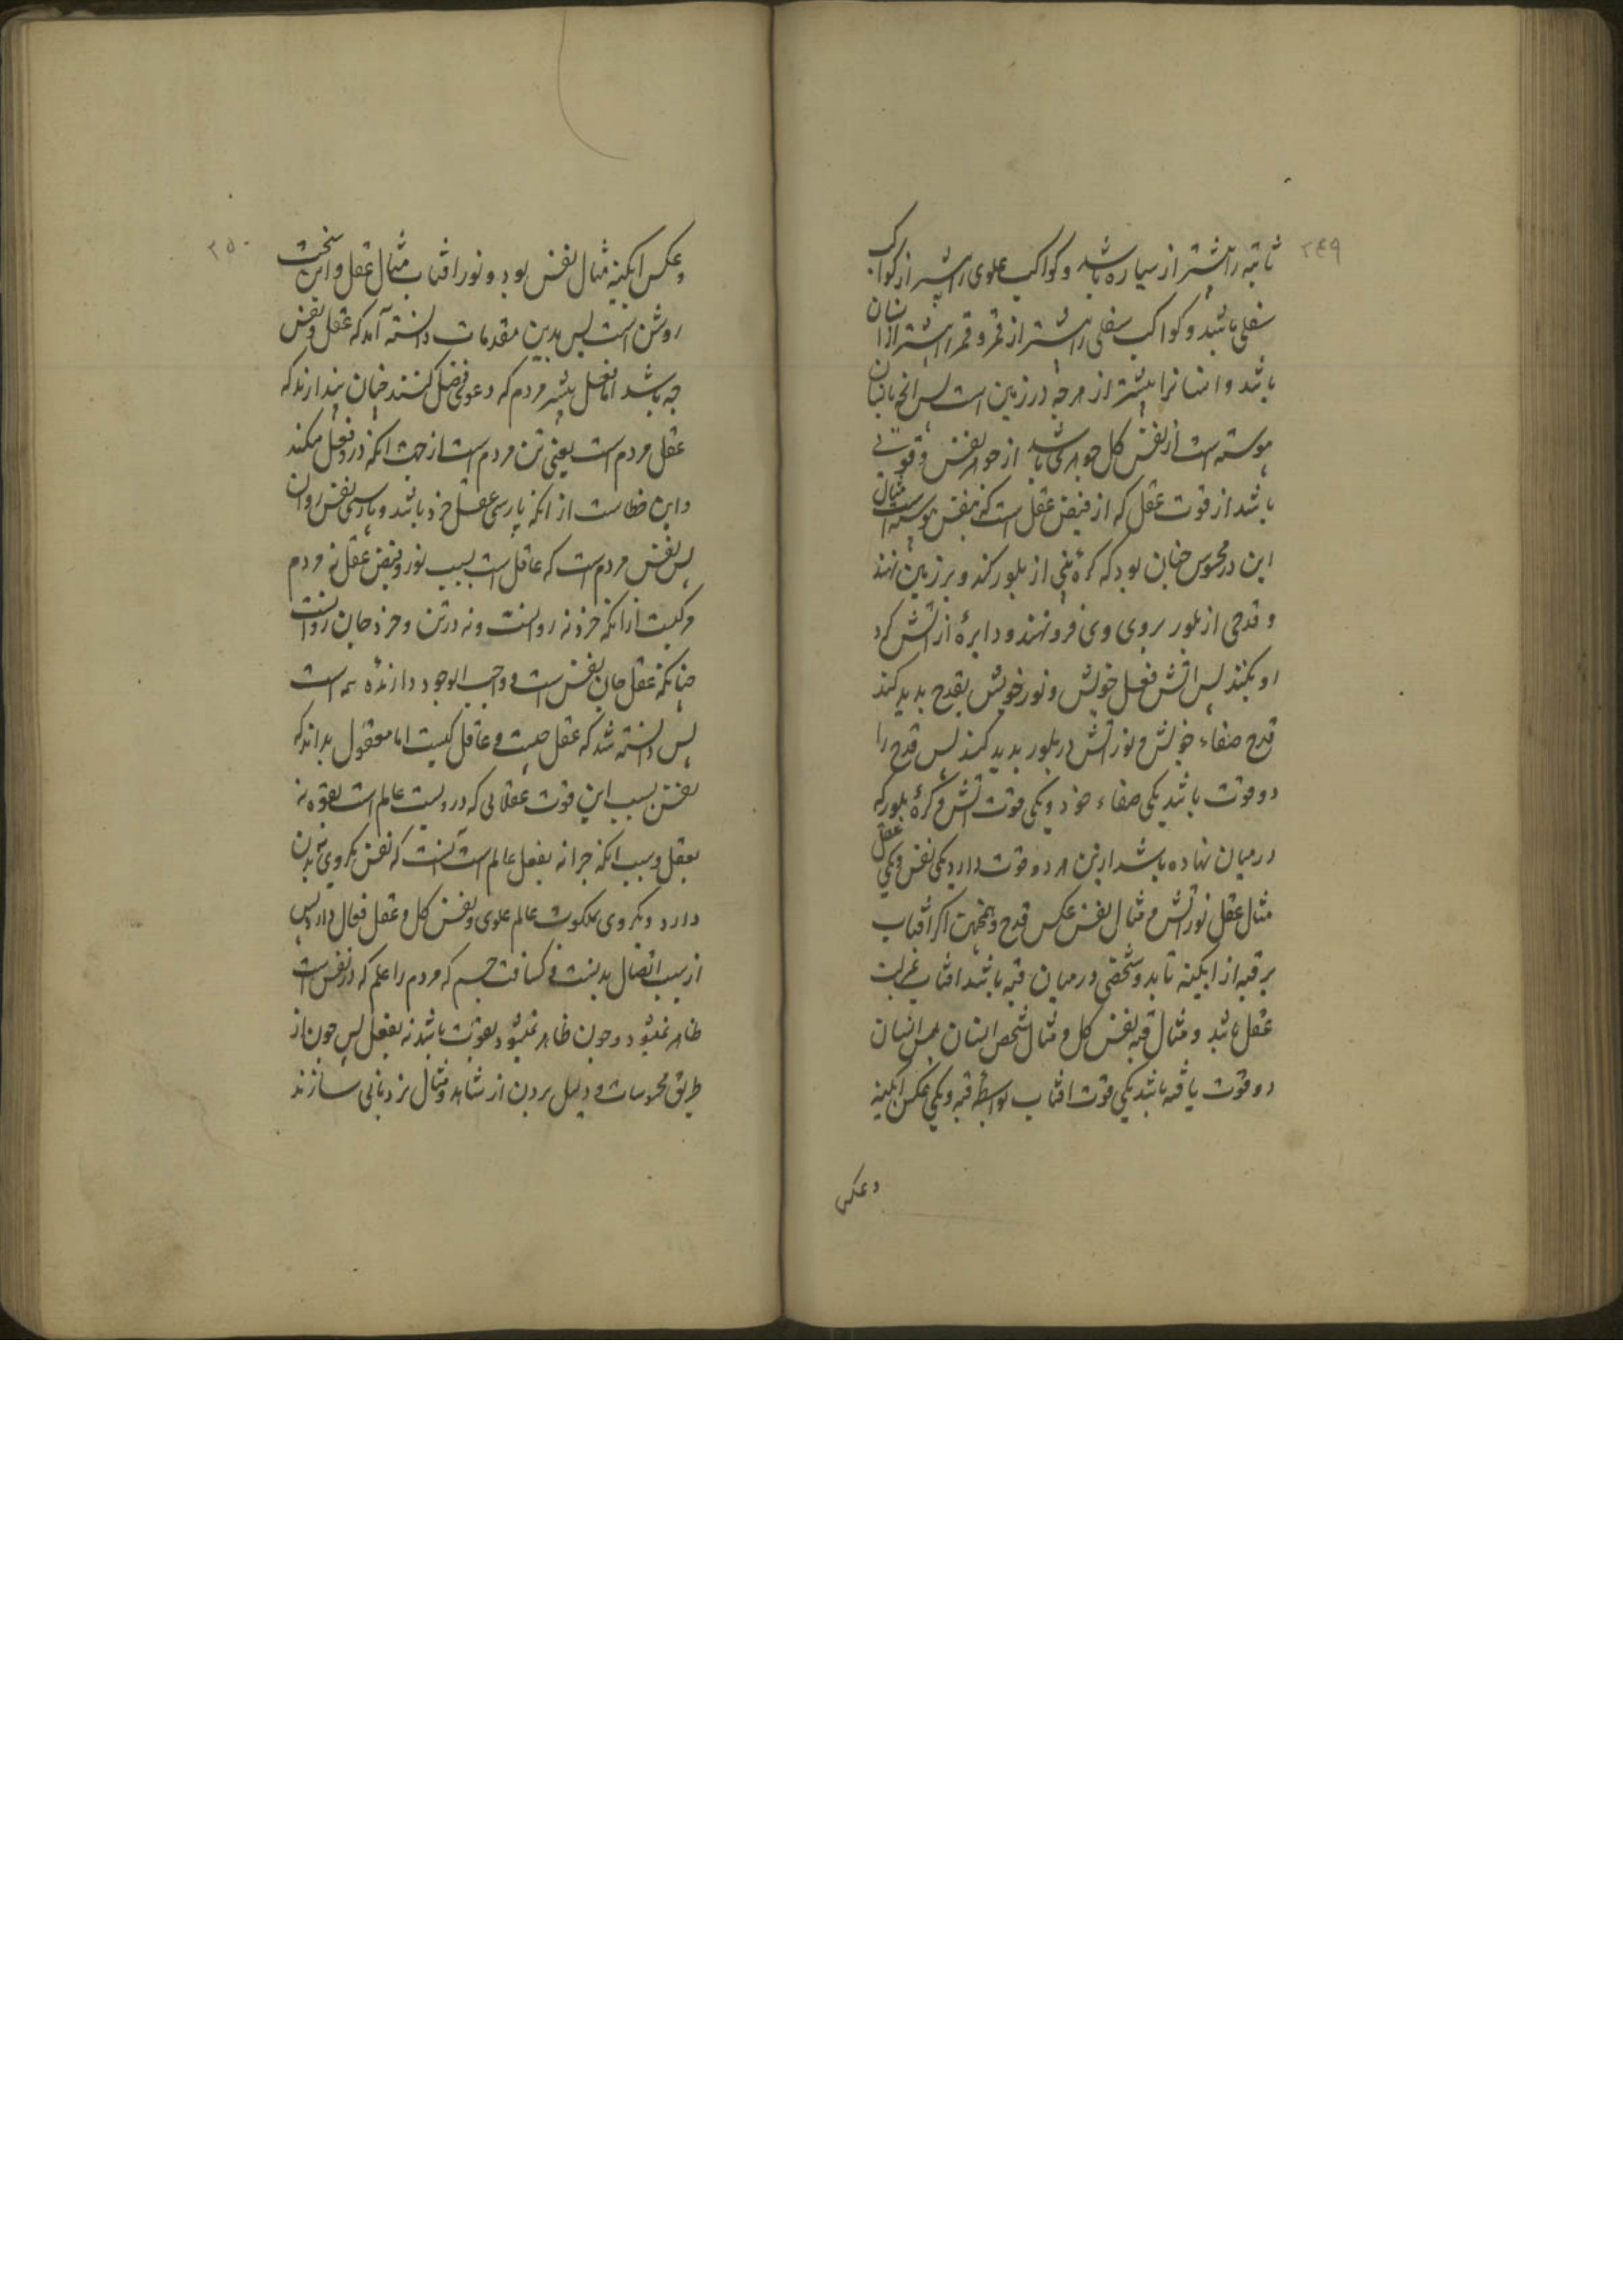 ۲۴۹
ثابته را بیشتر از سیاره باشد و کواکب علوی را بیشتر از کواکب
سفلی باشد و کواکب سفلی را بیشتر از قمر و قمر را بیشتر از انسان
باشد و انسانرا بیشتر از هرچه در زمین است پس انچه بانسان
پیوسته است از نفس کل جوهری باشد از جوهر نفس و قوتی
باشد از قوت عقل که از فیض عقل است که بنفس پیوسته است مثال
این در محسوس چنان بود که کرهٔ از بلور کند و بر زمین نهند
و قدحی از بلور بروی وی فرو نهند و دایرهٔ از آتش کرد
او بکنند پس آتش فعل خویش و نور خویش بقدح بدید کند
قدح صفاء خویش و نور آتش در بلور بدید کند پس قدح را
دو قوت باشد یکی صفاء خود و یکی قوت آتش و کرهٔ بلور که
در میان نهاده باشد ازین هر دو قوت دارد یکی نفس و یکی عقل
مثال عقل نور آتش و مثال نفس عکس قدح و همچنین اکر آفتاب
بر قبه از ابکینه تابد و شخصی در میان قبه باشد افتاب
عقل باشد و مثال قبه نفس کل و مثال شخص انسان پس انسان
دو قوت یافته باشد یکی قوت افتاب بواسطه قبه و یکی عکس ابکینه
و عکس
۲۵۰
و عکس ابکینه مثال نفس بود و نور افتاب مثال عقل و این سخت
روشن است پس بدین مقدمات دانسته آمد که عقل و نفس
چه باشد اما فعل بیشتر مردم که دعوی فضل کنند چنان پندارند که
عقل مردم است یعنی تن مردم است از جهت انکه درو فعل میکند
و این خطاست از انکه پارسی عقل خرد باشد و پارسی نفس روان
پس نفس مردم است که عاقل است بسبب نور و فیض عقل نه مردم
مرکبست ازانکه خرد نه روانست و نه در تن و خرد جان روانست
چنانکه عقل جان نفس است و واجب الوجود دارنده همه است
پس دانسته شد که عقل چیست و عاقل کیست اما معقول بداند که
نفس بسبب این قوت عقلانی که درویست عالم است بقوه نه
بفعل و سبب انکه چرا نه بفعل عالم است آنست که نفس یکروی به بدن
دارد و یکروی بملکوت عالم علوی و نفس کل و عقل فعال دارد پس
از سبب اتصال بدنست و کثافت جسم که مردم را علم که در نفس است
ظاهر نمیشود و چون ظاهر نمیشود بقوت باشد نه بفعل پس چون از
طریق محسوسات و دلیل بردن از شاهد و مثال نردبانی سازند